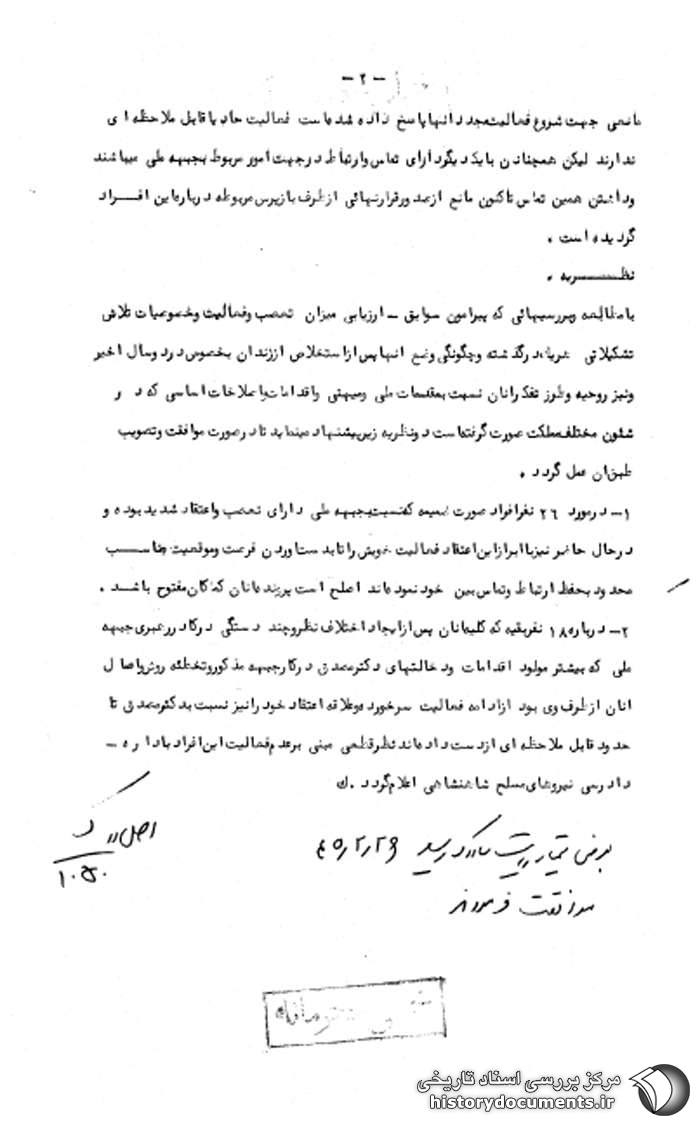 -۲-
مانعی جهت شروع فعالیت مجدد آنها پاسخ داده شده است فعالیت حاد یا قابل ملاحظه ای
ندارند لیکن همچنان با یکدیگر دارای تماس و ارتباط در جهت امور مربوط بجبهه ملی میباشند
و داشتن همین تماس تاکنون مانع از صدور قرار نهائی از طرف بازپرس مربوطه درباره این افراد
گردیده است .
نظریه .
با مطالعه و بررسیهائی که پیرامون سوابق - ارزیابی میزان تعصب و فعالیت و خصوصیات تلاش
تشکیلاتی هریک در گذشته و چگونگی وضع آنها پس از استخلاص از زندان بخصوص در دو سال اخیر
و نیز روحیه و طرز تفکر آنان نسبت بمقدسات ملی و میهنی و اقدامات و اصلاحات اساسی که در
شئون مختلف مملکت صورت گرفته است دو نظریه زیر پیشنهاد مینماید تا در صورت موافقت و تصویب
طبق آن عمل گردد .
۱- در مورد ۲۶ نفر افراد صورت ضمیمه که نسبت بجبهه ملی دارای تعصب و اعتقاد شدید بوده و
در حال حاضر نیز با ابراز این اعتقاد فعالیت خویش را تا بدست آوردن فرصت و موقعیت مناسب
محدود بحفظ ارتباط و تماس بین خود نموده اند اصلح است پرونده آنان کماکان مفتوح باشد .
۲- درباره ۱۸ نفر بقیه که کلیه آنان پس از ایجاد اختلاف نظر و چند دستگی در کادر رهبری جبهه
ملی که بیشتر مولود اقدامات و دخالتهای دکتر مصدق در کار جبهه مذکور و تخطئه روش و اعمال
آنان از طرف وی بود از ادامه فعالیت سرخورده و علاقه اعتقاد خود را نیز نسبت بدکتر مصدق تا
حدود قابل ملاحظه ای از دست داده اند نظر قطعی مبنی بر عدم فعالیت این افراد باداره -
دادرسی نیروهای مسلح شاهنشاهی اعلام گردد . ك
بعرض تیمسار ریاست ساواک رسید ۴۵/۲/۲۶
موافقت فرمودند
اصل در ک
۱۰۵۰
مرکز بررسی اسناد تاریخی
historydocuments.ir